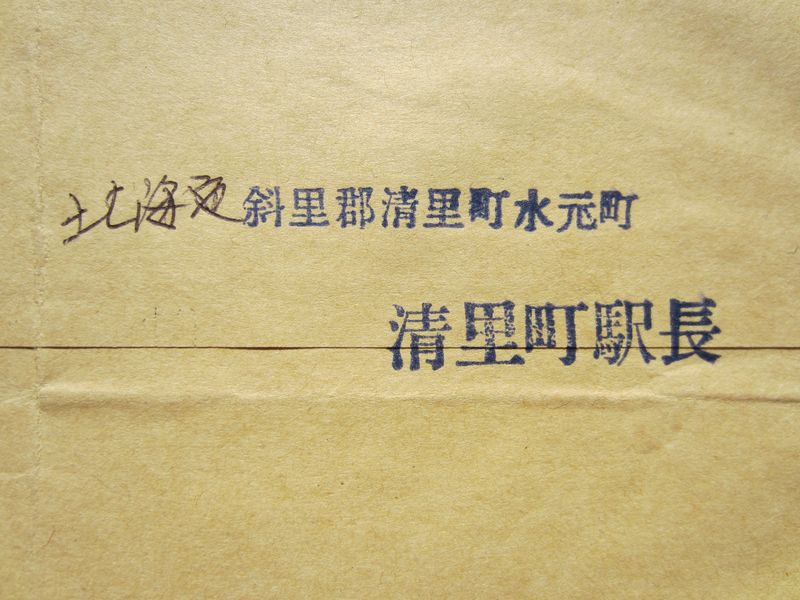 北海道斜里郡清里町水元町
清里町駅長